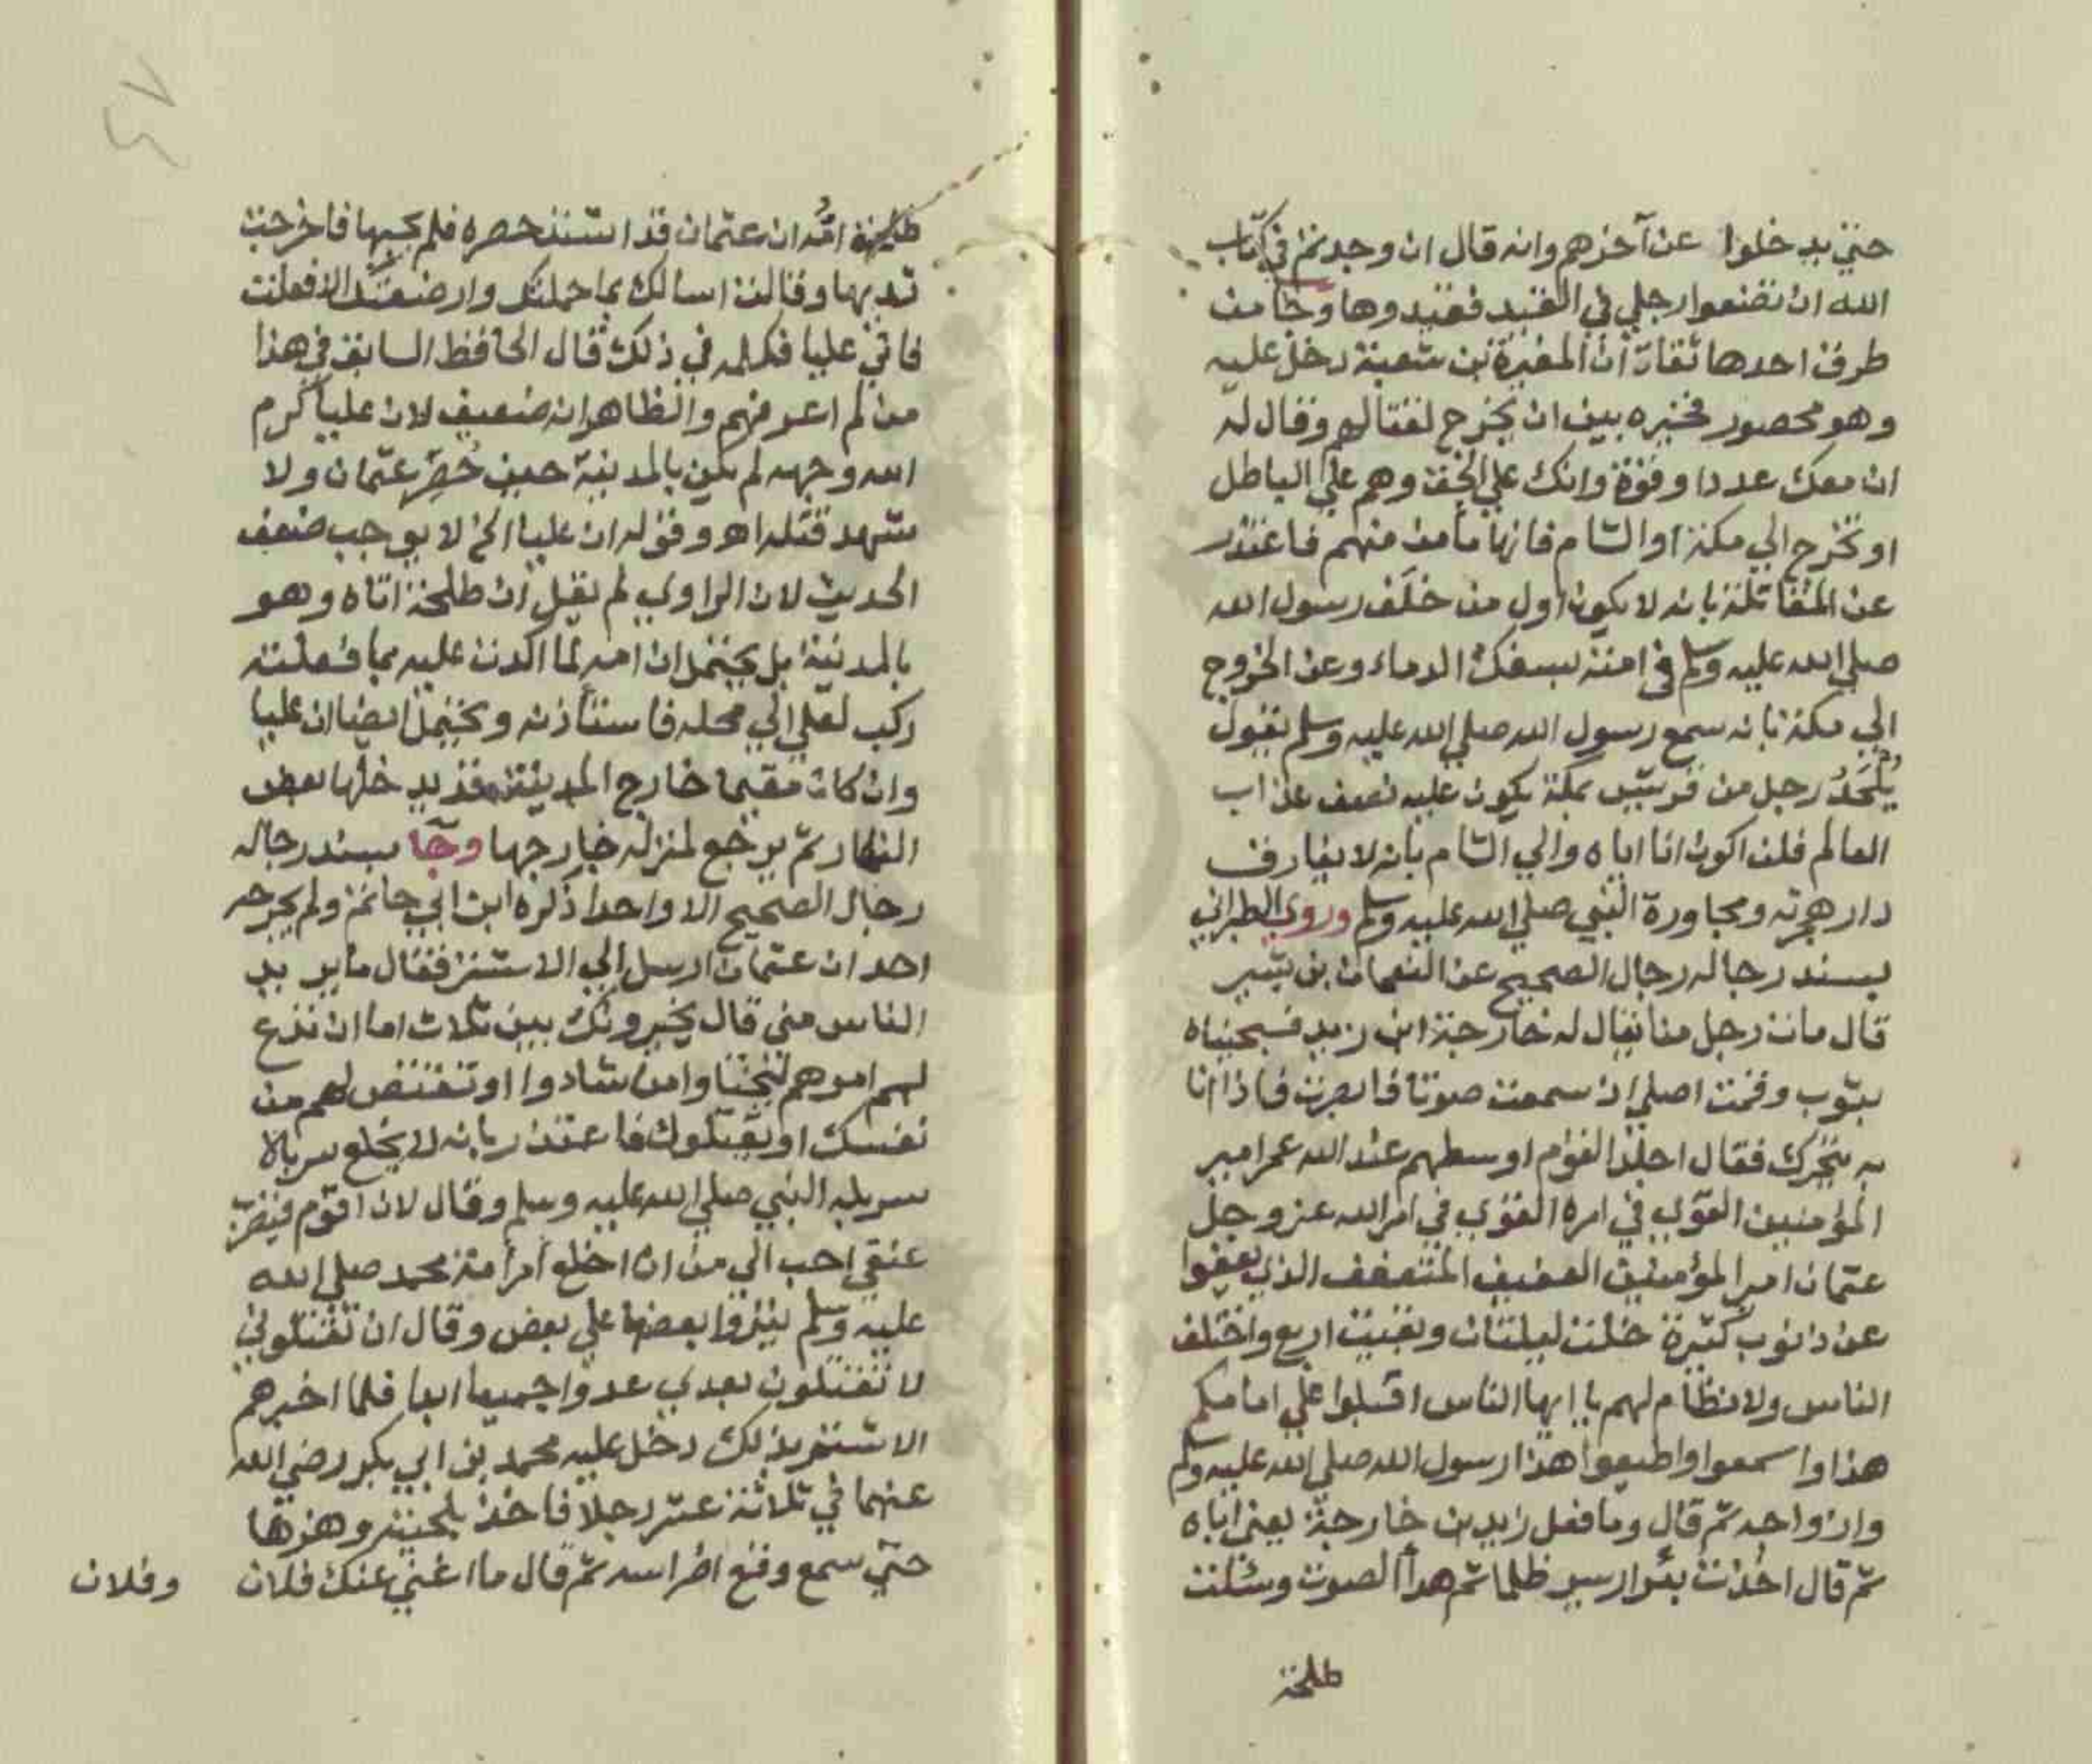 حتى يدخلوا عن آخرهم وانه قال ان وجدتم في كتاب
الله ان تضعوا رجلي في القيد فقيدوها وجا من
طرق احدها ثقات ان المغيرة بن شعبة دخل عليه
وهو محصور فخيره بين ان يخرج لقتالهم وقال له
ان معك عددا وقوة وانك علي الحق وهم علي الباطل
او تخرج الي مكة او الشام فانها مأمن منهم فاعتذر
عن المقاتلة بانه لا يكون اول من خلف رسول الله
صلي الله عليه وسلم في امته بسفك الدماء وعن الخروج
الي مكة بانه سمع رسول الله صلي الله عليه وسلم يقول
يُلْحَدُ رجل من قريش بمكة يكون عليه نصف عذاب
العالم فلن اكون انا اياه والي الشام بانه لا يفارق
دار هجرته ومجاورة النبي صلي الله عليه وسلم وروي الطبراني
بسند رجاله رجال الصحيح عن النعمان بن بشير
قال مات رجل منا يقال له خارجة ابن زيد فسجيناه
بثوب وقمت اصلي اذ سمعت صوتا فابصرت فاذا انا
به يتحرك فقال اجلد القوم اوسطهم عند الله عمر امير
المؤمنين القوي في امره القوي في امر الله عز وجل
عثمان امير المؤمنين العفيف المتعفف الذي يعفوا
عن ذنوب كثيرة خلت ليلتان وبقيت اربع واختلف
الناس ولا نظام لهم يا ايها الناس اقبلوا علي امامكم
هذا واسمعوا واطيعوا هذا رسول الله صلي الله عليه وسلم
وابن واحد ثم قال وما فعل زيد بن خارجة يعني اباه
ثم قال اخذت بئر اريس ظلما ثم هدأ الصوت وسئلت
طلحة
طلحة امُّه ان عثمان قد اشتد حصره فلم يجبها فاخرجت
ثديها وقالت اسالك بما حملتك وارضعتك الا فعلت
فاتي عليا فكلمه في ذلك قال الحافظ السابق في هذا
من لم اعرفهم والظاهر انه ضعيف لان عليا كرم
الله وجهه لم يكن بالمدينة حين حُصِر عثمان ولا
شهد قتله اه وقوله ان عليا الخ لا يوجب ضعف
الحديث لان الراوي لم يقل ان طلحة اتاه وهو
بالمدينة بل يحتمل ان امه لما اكدت عليه بما فعلته
ركب لعلي الي محله فاستأذنه ويحتمل ايضا ان عليا
وان كان مقيما خارج المدينة قد يدخلها بعض
النهار ثم يرجع لمنزله خارجها وجا بسند رجاله
رجال الصحيح الا واحدا ذكره ابن ابي حاتم ولم يجرحه
احد ان عثمان ارسل الي الاشتر فقال ما يريد
الناس مني قال يخيرونك بين ثلاث اما ان تدع
لهم امرهم ليختاوا من شادوا او تقتص لهم من
نفسك او يقتلوك فاعتذر بانه لا يخلع سربالا
سربله النبي صلي الله عليه وسلم وقال لان اقوم فيضرب
عنقي احب الي من ان اخلع امر امة محمد صلي الله
عليه وسلم ينزوا بعضها علي بعض وقال ان تقتلوني
لا تقتلون بعدي عدوا جميعا ابدا فلما اخبرهم
الاشتر بذلك دخل عليه محمد بن ابي بكر رضي الله
عنهما في ثلاثة عشر رجلا فاخذ بلحيته وهزها
حتي سمع وقع اضراسه ثم قال ما اغني عنك فلان وفلان